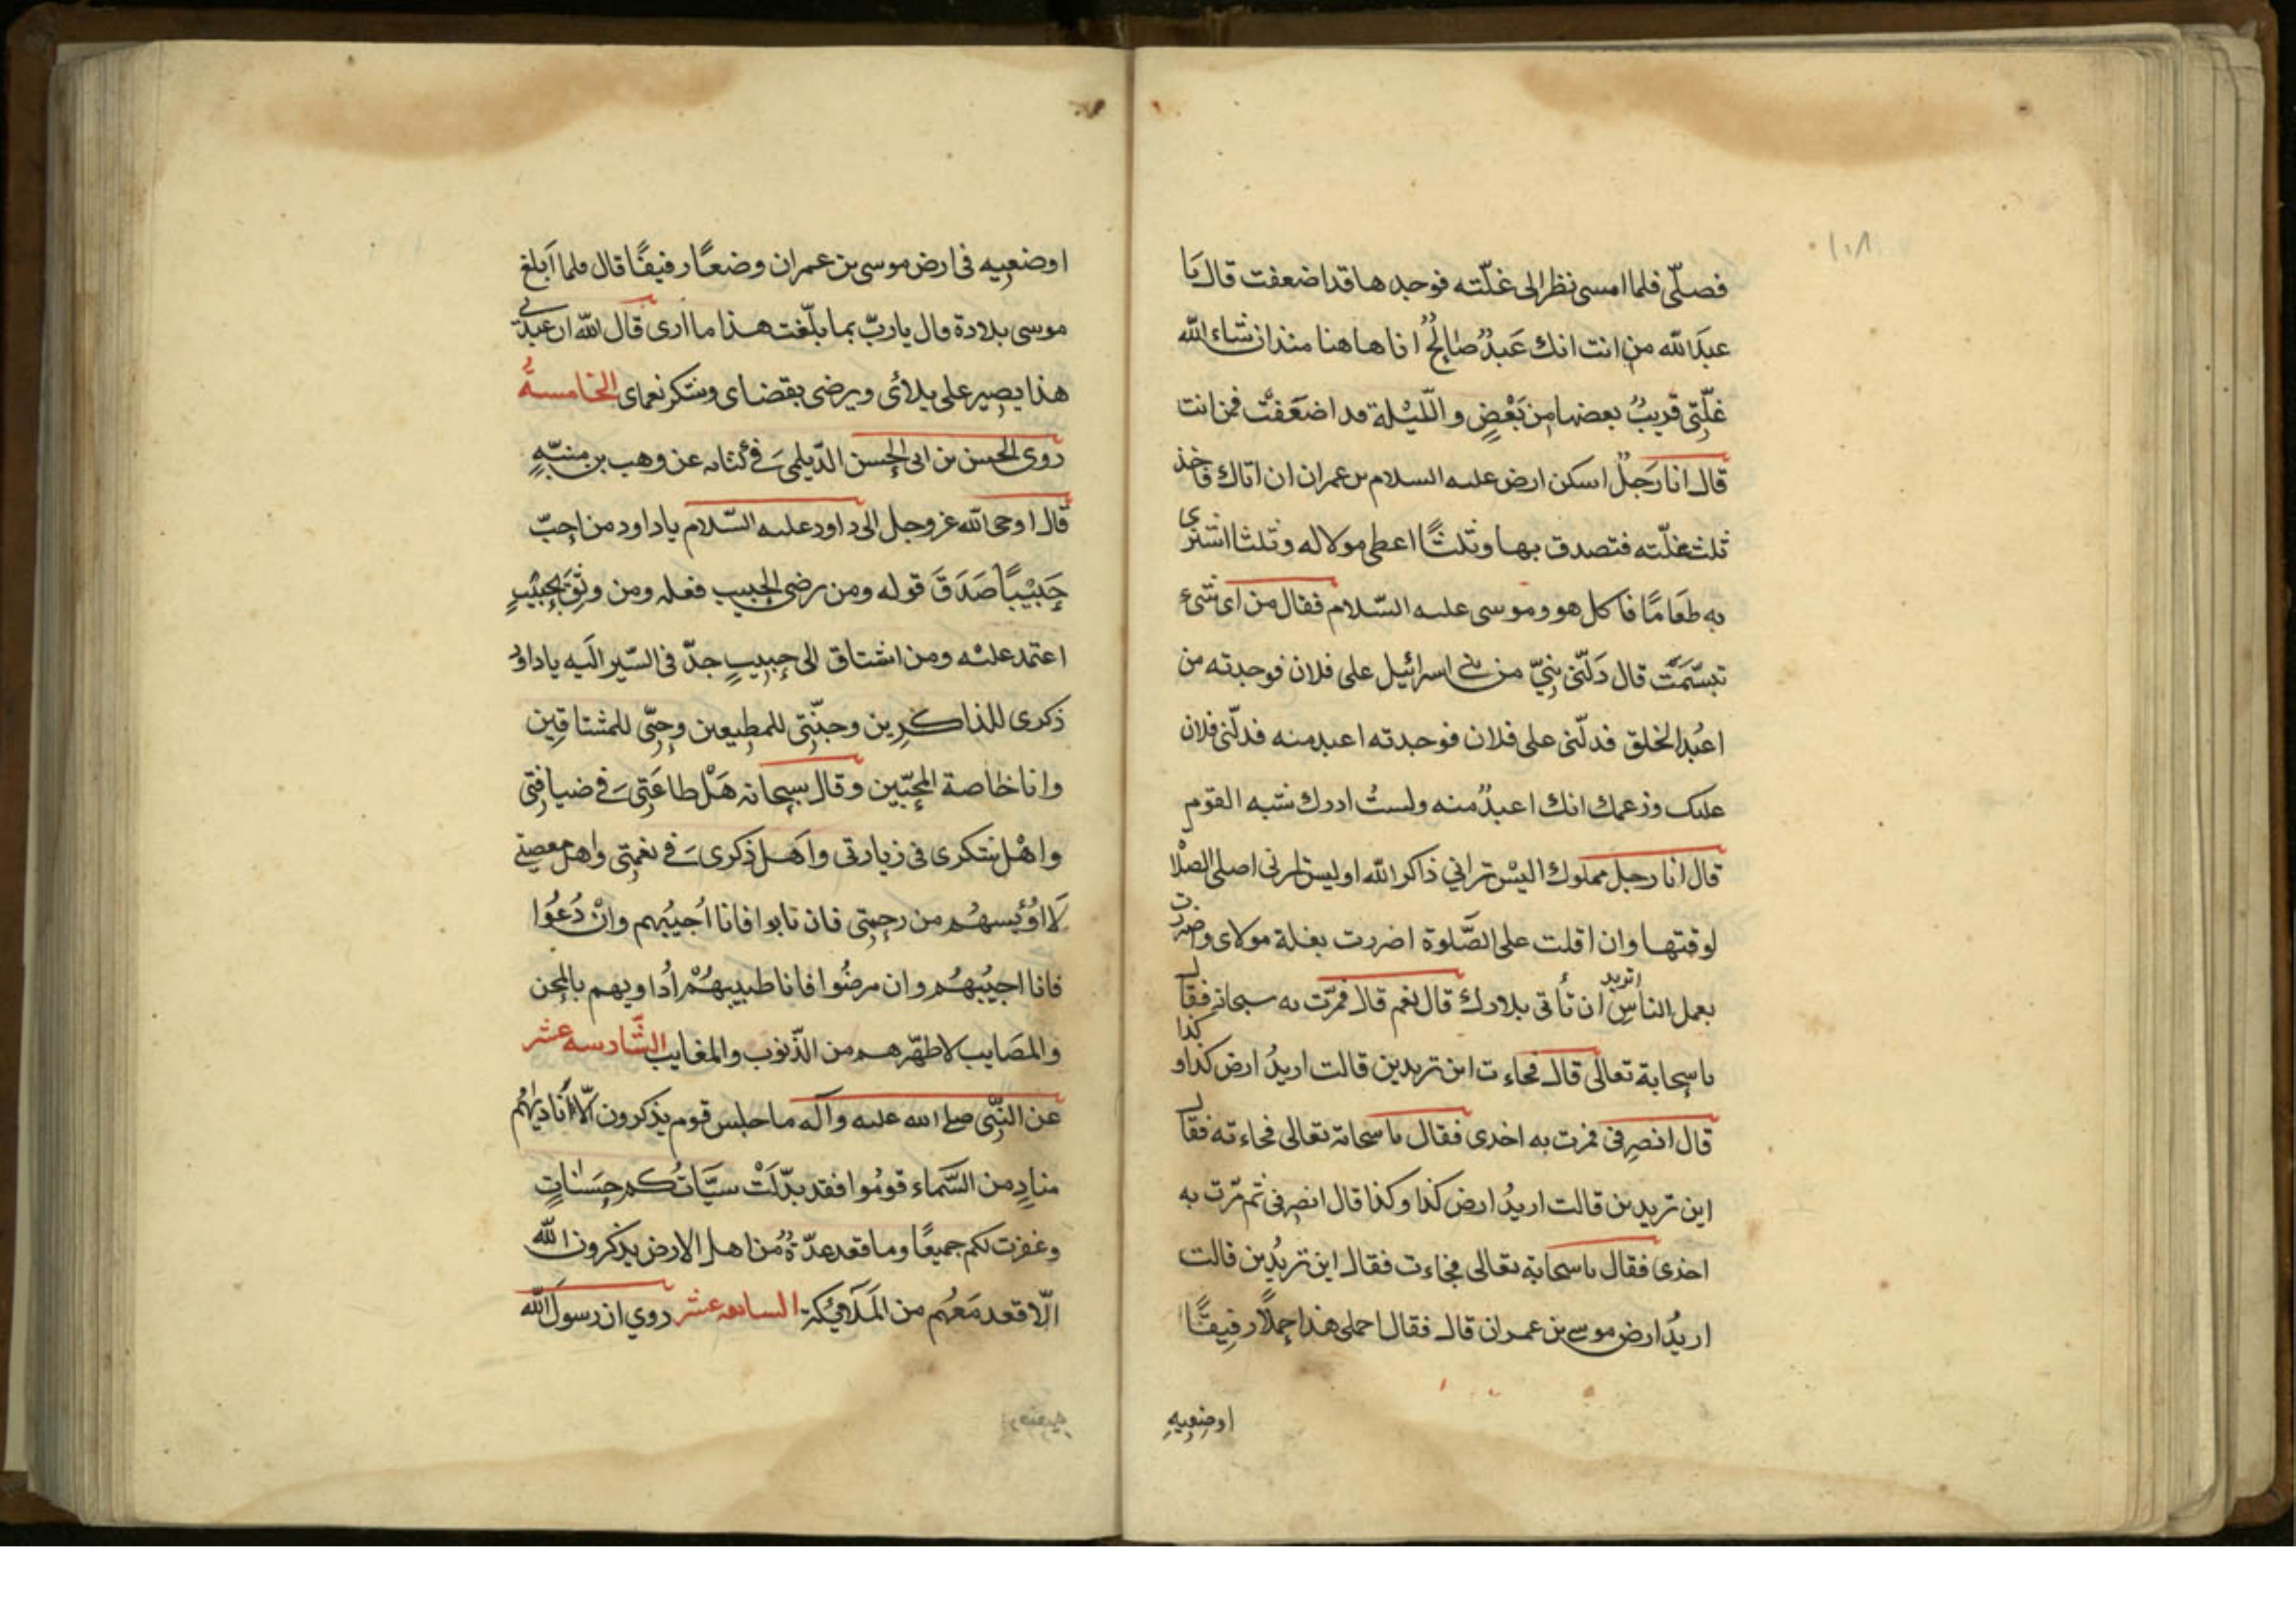 ١٠٨
فصلّى فلما امسى نظر الى غلّته فوجدها قد اضعفت قال يَا
عبدَ الله من انت انك عَبدٌ صٰالحٌ انا هاهنا منذ ان شاء الله
غلّتي قريبٌ بعضها مِن بَعْضٍ و اللّيْلة قد اضعَفتْ فمن انت
قال انا رَجلٌ اسكن ارض عليه السلام بن عمران ان اتاك فاخذ
ثلث غلّته فتصدق بها وثلثًا اعطى مولا له وثلثا اشترى
به طعَامًا فاكل هو وموسى عليه السّلام فقال من اى شىء
تبسّمَتَ قال دَلّني نبِيّ من بني اسرائيل على فلان فوجدته من
اعبُد الخلق فدلّنى على فلان فوجدته اعبد منه فدلّنى فلان
عليك وزعمك انك اعبدُ منه ولستُ ادرك شبه القوم
قال انا رجل مملوك اليسْ تراني ذاكر الله اوليس ترنى اصلى الصلٰاة
لوقتها وان اقلت على الصَّلوة اضررت بغلة مولاى وضررت
بعمل الناسِ اتريد ان تأتى بلادك قال نعم قال فمرّت به سحابة فقال
يا سحابة تعالى قال فجاءت اين تريدين قالت اريدُ ارض كذا وكذا
قال انصرِفى فمرت به اخدى فقال يا سحابة تعالى فجاءته فقال
اين تريدين قالت اريدُ ارض كذا وكذا قال انصرفى ثم مّرت به
احذى فقال يا سحابة تعالى فجاءت فقال اين تريُدين قالت
اريدُ ارض موسى بن عمران قال فقال احملى هذا حِملًا رفِيقًا
اوضعِيهِ
اوضعيه فى ارض موسى بن عمران وضعًا رفيقًا قال فلما اَبلغ
موسى بلادة قال ياربّ بما بلّغت هذا ما ارى قال الله ان عبدى
هذا يصبر على بلائى ويرضى بقضاى وشكر نعماى الخامسةُ
روى الحسن بن ابى الحسن الدّيلمى في كتابه عن وهب بن منبّهٍ
قال اوحى الله عز وجل الى داود عليه السّلام ياداود من احِبّ
حَبيْبًا صَدَقَ قوله ومن رضى الحبيب فعله ومن وثِقَ بحبيْبٍ
اعتمد عليْه ومن اشتاق الى حبيبٍ جدّ فى السّير اليَه ياداود
ذكرى للذاكرِين وجنّتِي للمطِيعين وحبّى للمشتاقين
وانا خٰاصة المحبّين وقال سبحانه هَلْ طاعَتِى في ضيافتى
واهْل شكرى فى زيارتى واَهَل ذكرى في نعمتى واهل معصيتى
لَا اوُئيسهُم من رحمتِى فان تابوا فانا اُجيبُهم وانْ دُعُوا
فانا اجيُبهُم وان مرضُوا فانا طبيبهُمْ اُداويهم بالمحن
والمصَايب لاطهّرهم من الذّنوب والمغايب السّادسه عشر
عن النّبّي صلى الله عليه وآله ما جلس قوم يذكرون الّا اَنَاديهُم
منادٍ من السَّماء قومُوا فقد بدّلَتْ سيَّاتُكم حِسَنٰاتٍ
وغفرت لكم جميعًا وما قعد عدّةُ من اهل الارض يذكرون الله
الّا قعد مَعهُم من المَلاَئِكة السابعه عشر روي ان رسولَ الله